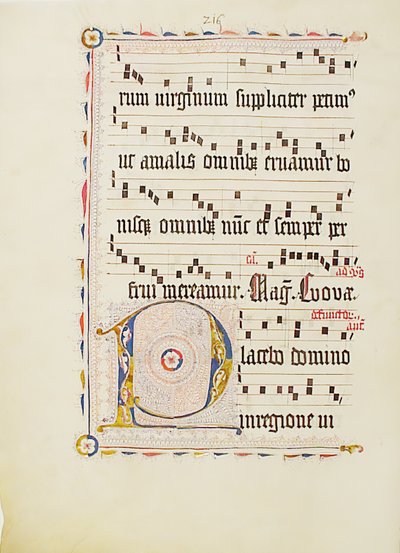 216
rum uirginum suppliciter petim⁹
ut amalis omnibꝫ eruamur bo
nisqꝫ omnibꝫ nūc et semper per
frui mereamur. Mag̃. Evovæ.
Placebo domino
inregione ui